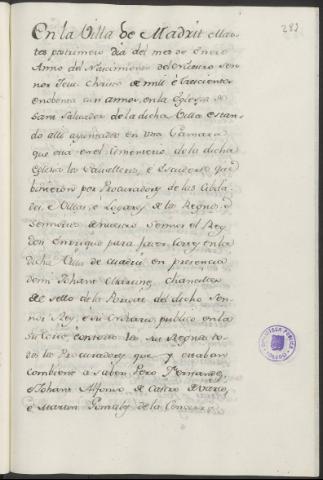 283
En la Villa de Madrit Mar-
tes postrimero dia del mes de Enero
Anno del Nascimiento del nuestro Sen-
nor Jesu Christo de mil è trescientos
è nobenta è un annos, en la Eglesia de
Sant Salvador de la dicha Villa estan-
do alli ayuntados en una Camara
que està en el Cimenterio de la dicha
Eglesia los Cavalleros, è Escuderos que
binieron por Procuradores de las Cibda-
des è Villas, è Logares de los Regnos, y
Sennorios de nuestro Sennor el Rey
don Enrique para facer Cortes en la
dicha Villa de Madrit en presencia
de mi Johant Martinez, Chanciller
del Sello de la Poridat del dicho Sen-
nor Rey, è su Notario publico en la
su Corte è en todos los sus Regnos to-
dos los Procuradores que y estaban
combiene à saber, Pero Fernandez,
è Johant Alfonso de Castro
è Martin Gonzalez de la
BIBLIOTECA PUBLICA
TOLEDO